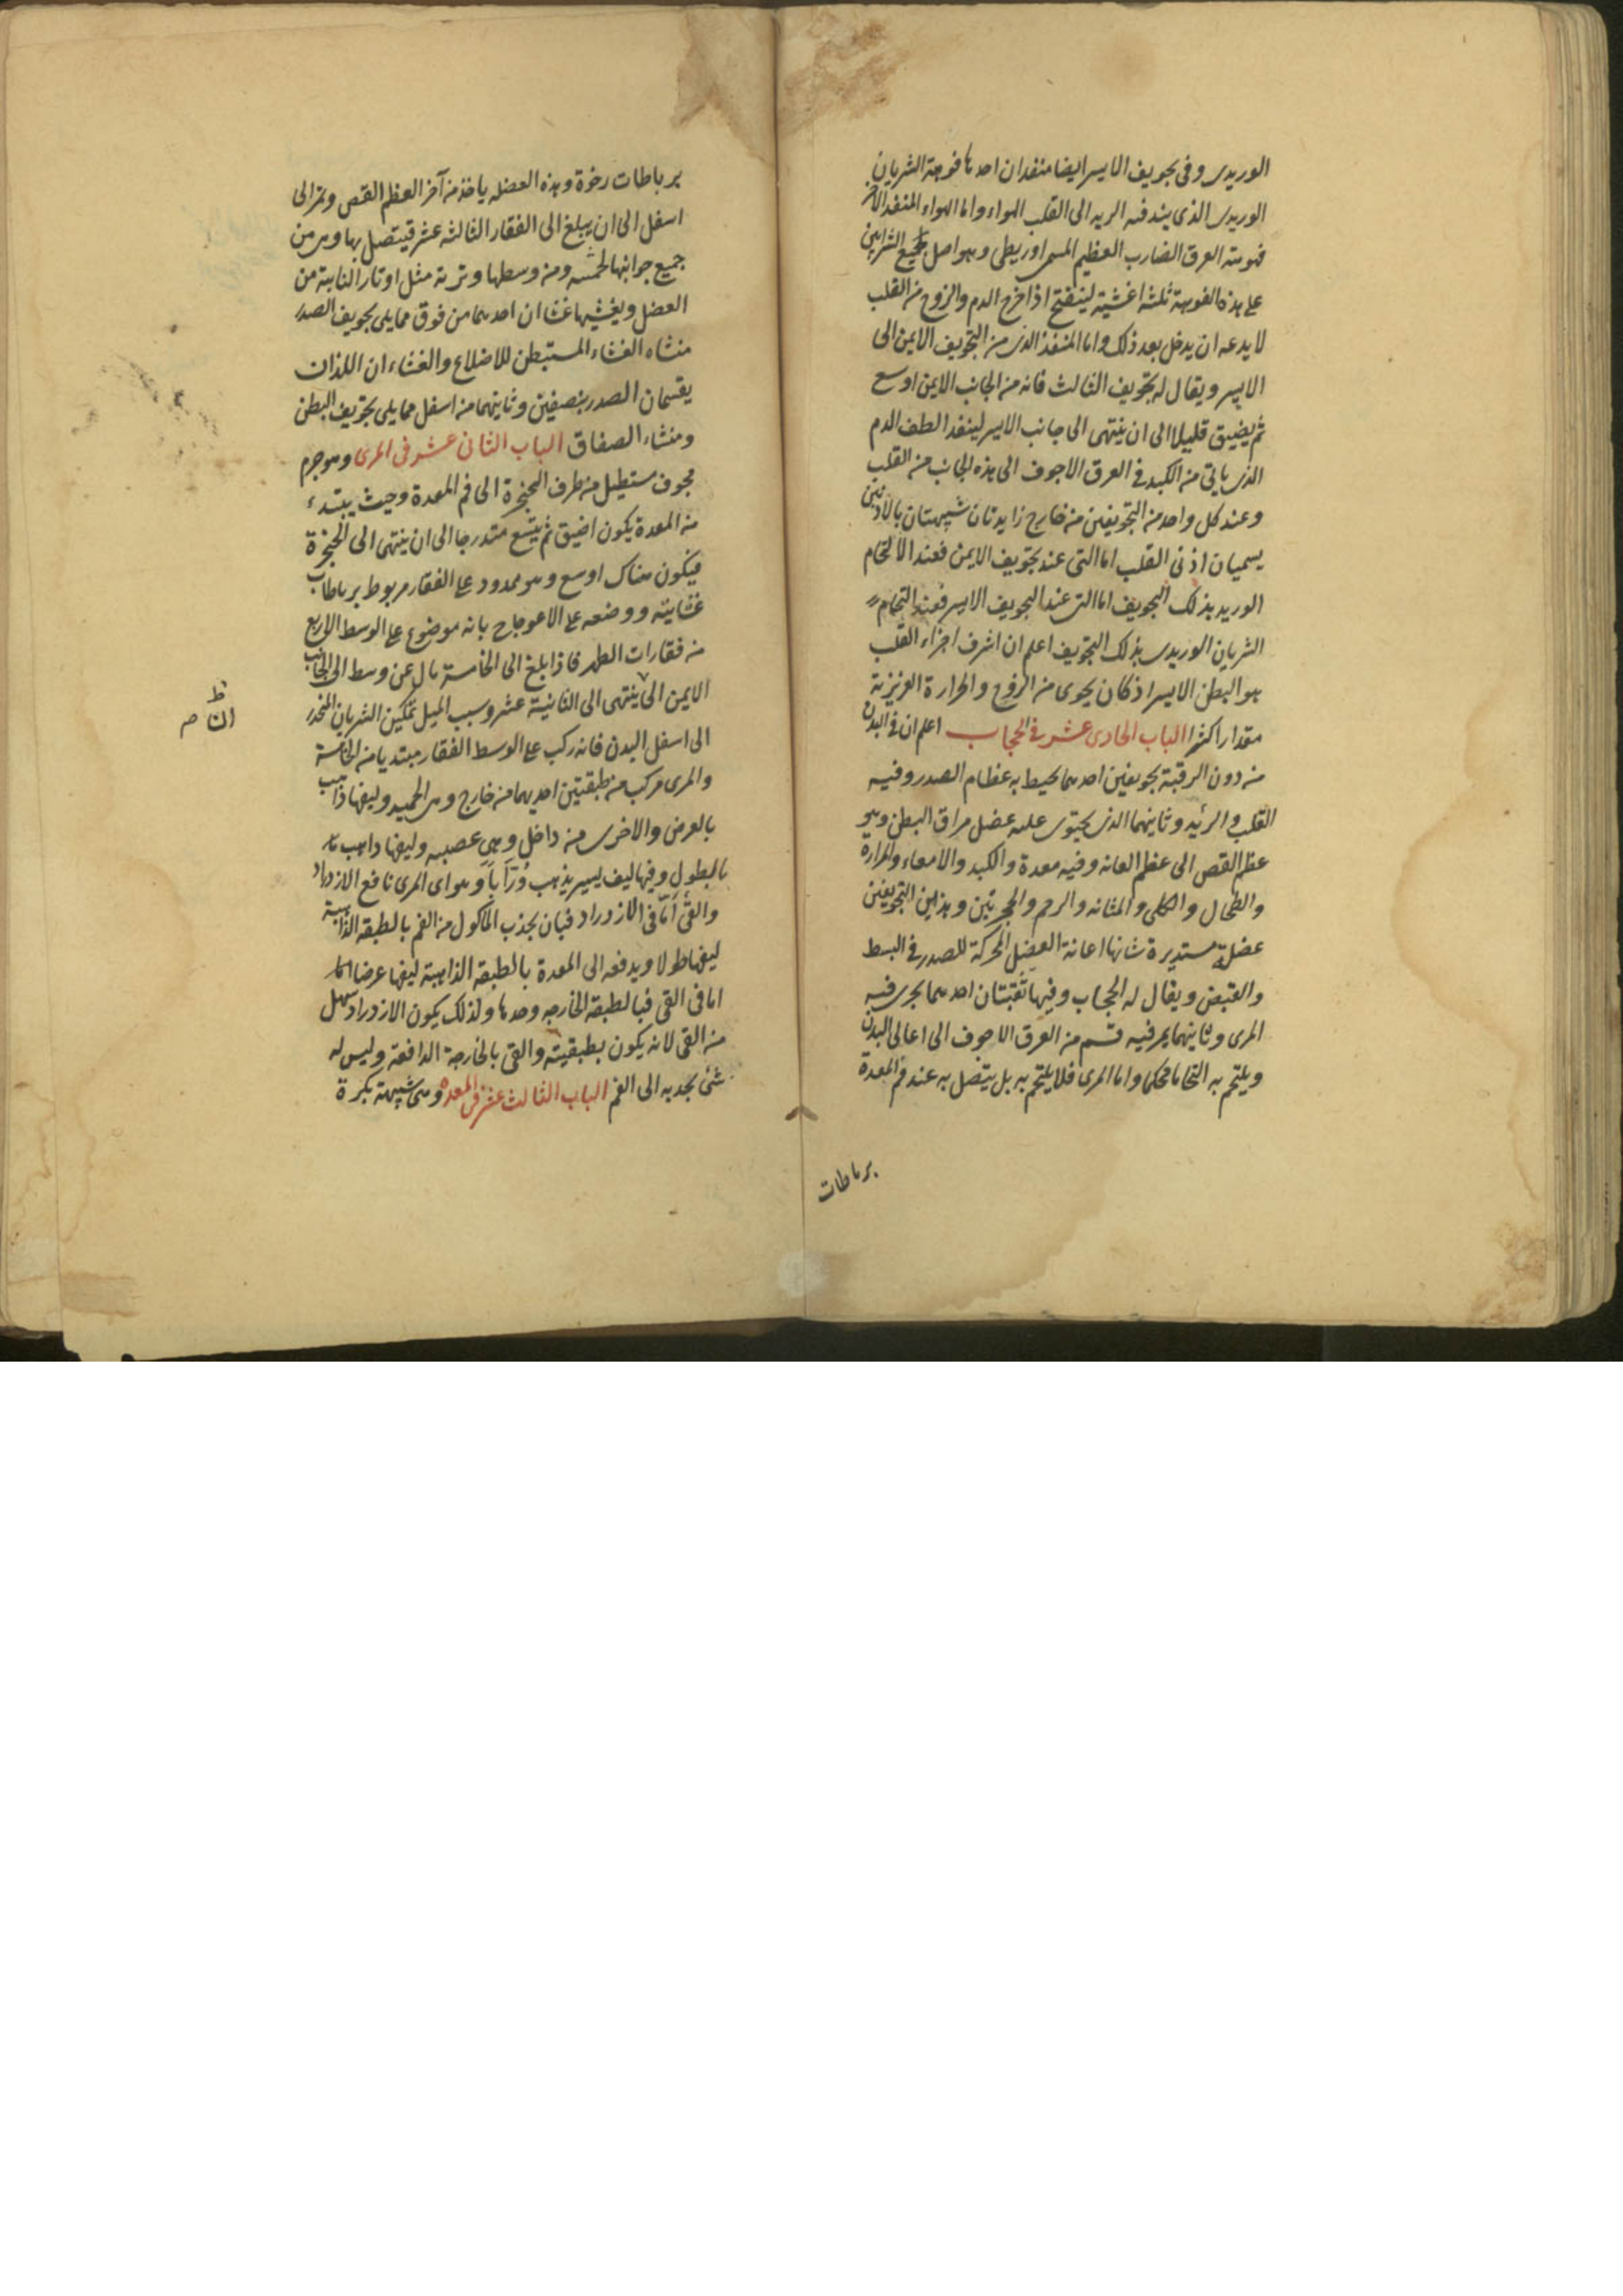 الوريدى وفى تجويف الايسر ايضا منفذان احدها فوهة الشريان
الوريدى الذى ينفذ فيه الريه الى القلب الهواء واما الهواء المنفذ الاخر
فهوهته العرق الضارب العظيم المسمى اوريطى وهو اصل جميع الشرايين
على هذه الفوهة ثلثه اغشية لينفتح اذا خرج الدم والروح من القلب
لا يدعه ان يدخل بعد ذلك واما المنفذ الذى من التجويف الايمن الى
الايسر ويقال له تجويف الثالث فانه من الجانب الايمن اوسع
ثم يضيق قليلا الى ان ينتهى الى جانب الايسر لينفذ الطف الدم
الذى ياتى من الكبد فى العرق الاجوف الى هذه الجانب من القلب
وعند كل واحد من التجويفين من خارج زايدتان شبيهتان بالاذنين
يسميان اذنى القلب اما التى عند تجويف الايمن فعند الالتحام
الوريد بذلك التجويف اما التى عند التجويف الايسر فعند التحام
الشريان الوريدى بذلك التجويف اعلم ان اشرف اجزاء القلب
هو البطن الايسر اذ كان يحوى من الروح والحرارة الغريزية
مقدارا كثيرا الباب الحادى عشر فى الحجاب اعلم ان فى البدن
من دون الرقبة تجويفين احدهما يحيط به عظام الصدر وفيه
القلب والرئيه وثانيهما الذى يحتوى عليه عضل مراق البطن وهو
عظم القص الى عظم العانه وفيه معدة والكبد والامعاء والمرارة
والطحال والكلى والمثانه والرحم والحجر بين وهذين التجويفين
عضلة مستديرة شانها اعانة العضل المحركة للصدر فى البسط
والقبض ويقال له الحجاب وفيها ثقبتان احدهما يجرى فيه
المرى وثانيهما يمر فيه قسم من العرق الاجوف الى اعالى البدن
ويلتحم به التحاما محكما واما المرى فلا يلتحم به بل يتصل به عند فم المعدة
برباطات
برباطات رخوة وهذه العضله ياخذ من آخر العظم القص وتمر الى
اسفل الى ان يبلغ الى الفقار الثالثه عشر فيتصل بها وهى من
جميع جوانبها لحميه ومن وسطها وترية مثل اوتار النابتة من
العضل ويغشيها غشاان احدهما من فوق مما يلى تجويف الصدر
منشاه الغشاء المستبطن للاضلاع والغشاء ان اللذان
يقسمان الصدر بنصفين وثانيهما من اسفل مما يلى تجويف البطن
ومنشاه الصفاق الباب الثانى عشر فى المرى وهو جرم
مجوف مستطيل من طرف الحنجرة الى فم المعدة وحيث يبتدء
من المعدة يكون اضيق ثم يتسع متدرجا الى ان ينتهى الى الحنجرة
فيكون هناك اوسع وهو ممدود على الفقار مربوط برباطات
غشائيه ووضعه على الاعوجاج بانه موضوع على الوسط الاربع
من فقارات الظهر فاذا بلغ الى الخامسة مال عن وسط الى الجانب
الايمن الى ينتهى الى الثانية عشر وسبب الميل تمكين الشريان المنحدر
الى اسفل البدن فانه ركب على الوسط الفقار مبتديا من الخامسة
والمرى مركب من طبقتين احديهما من خارج وهى لحميه وليفها ذاهب
بالعرض والاخرى من داخل وهى عصبيه وليفها داهب
بالطول وفيها ليف يسير يذهب وُرَاباً وهو اى المرى نافع الازدراد
والقئ أمّا فى الازدراد فبان يجذب الماكول من الفم بالطبقه الذاهبة
ليفها طولا ويدفعه الى المعدة بالطبقه الذاهبة ليفها عرضا
اما فى القى فبالطبقة الخارجه وحدها ولذلك يكون الازدراد سهل
من القى لانه يكون بطبقيته والقى بالخارجة الدافعة وليس له
شئ يجذبه الى الفم الباب الثالث عشر فى المعده وهى شبيهة بكرة